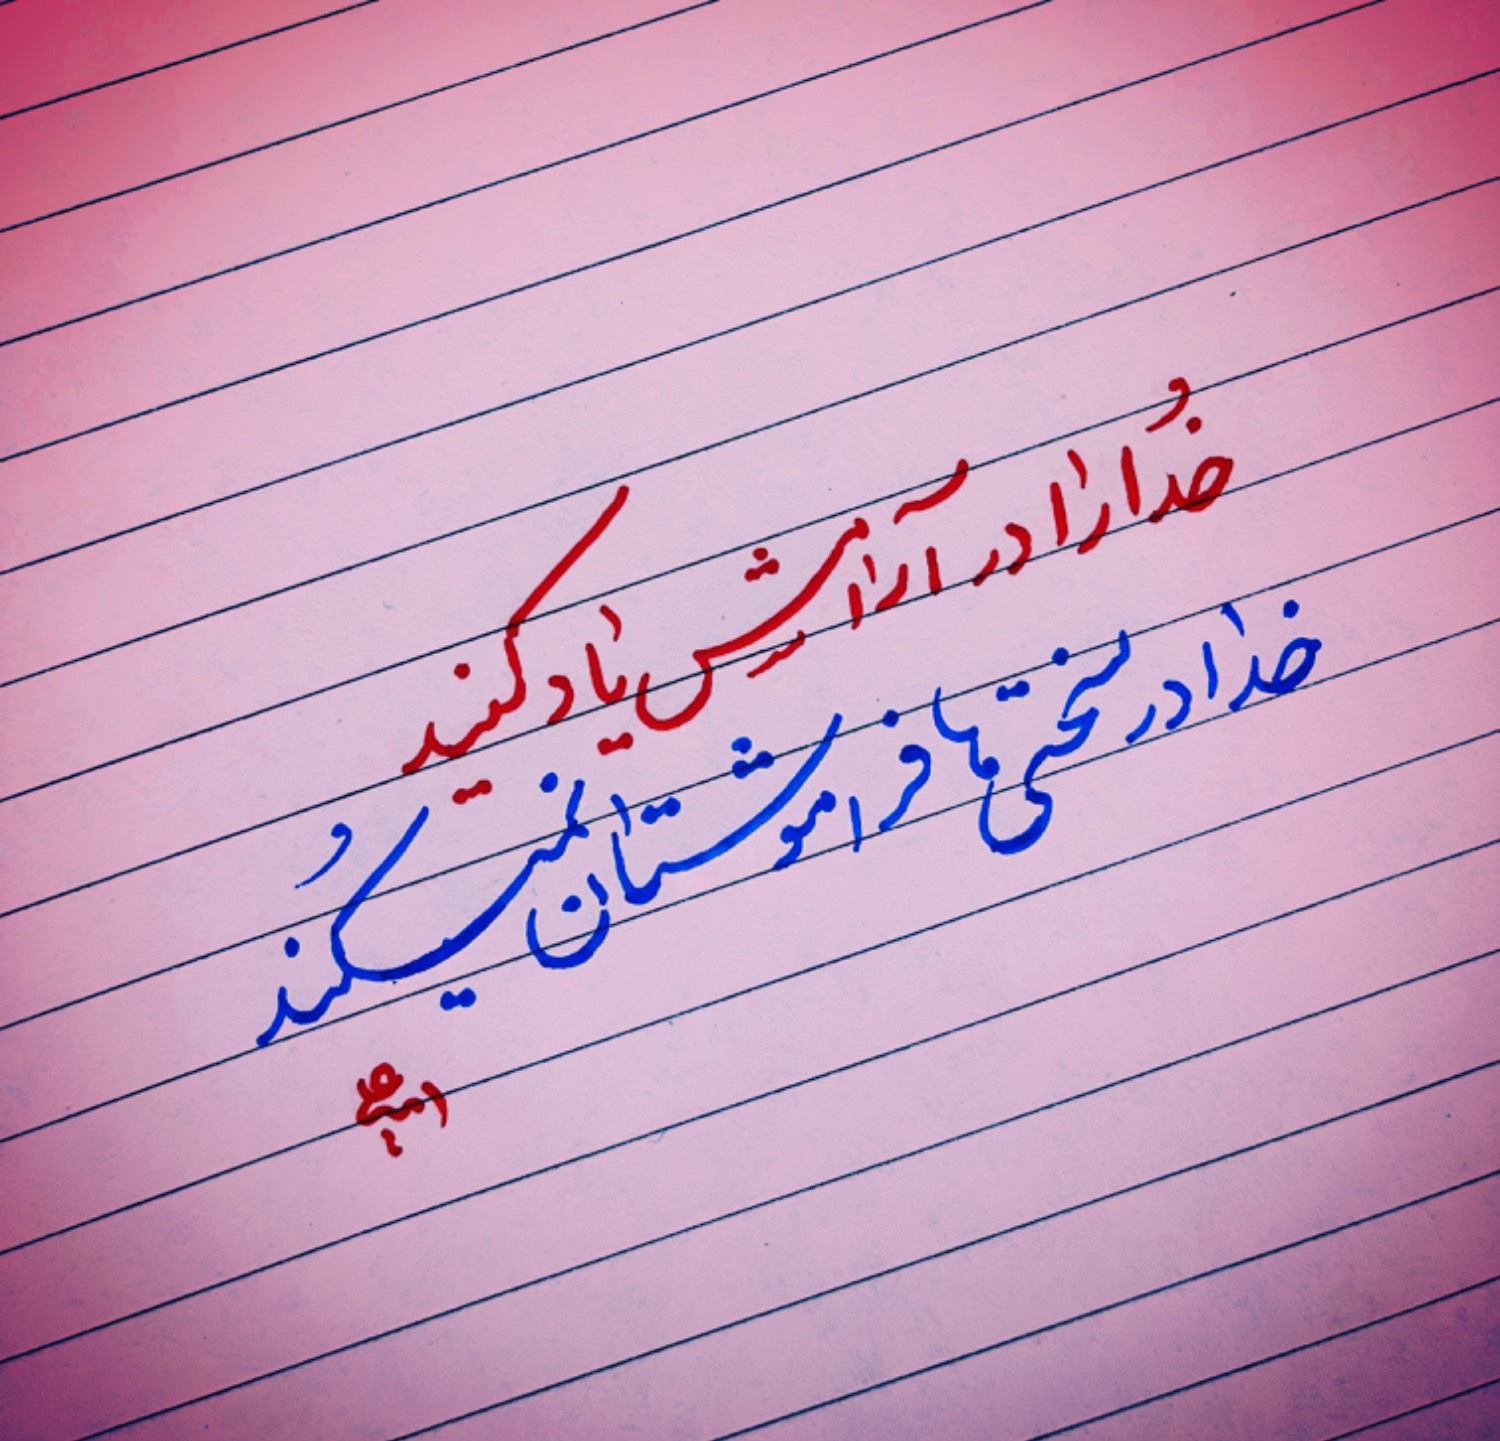 خُدا را در آرامش یاد کنید
خدا در سختی ها فراموشتان نمیکند